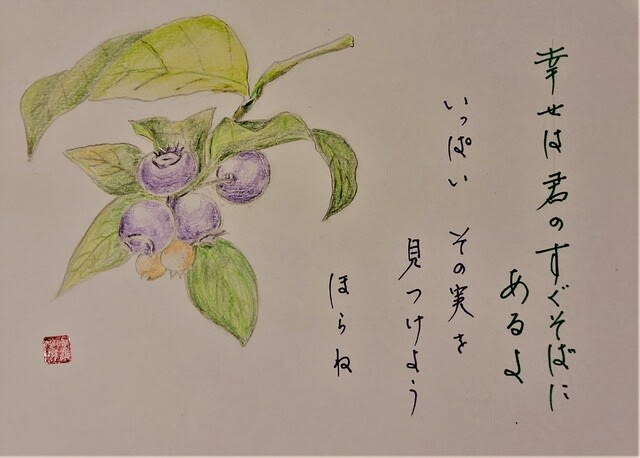 幸せは君のすぐそばに
あるよ
いっぱい その実を
見つけよう
ほらね